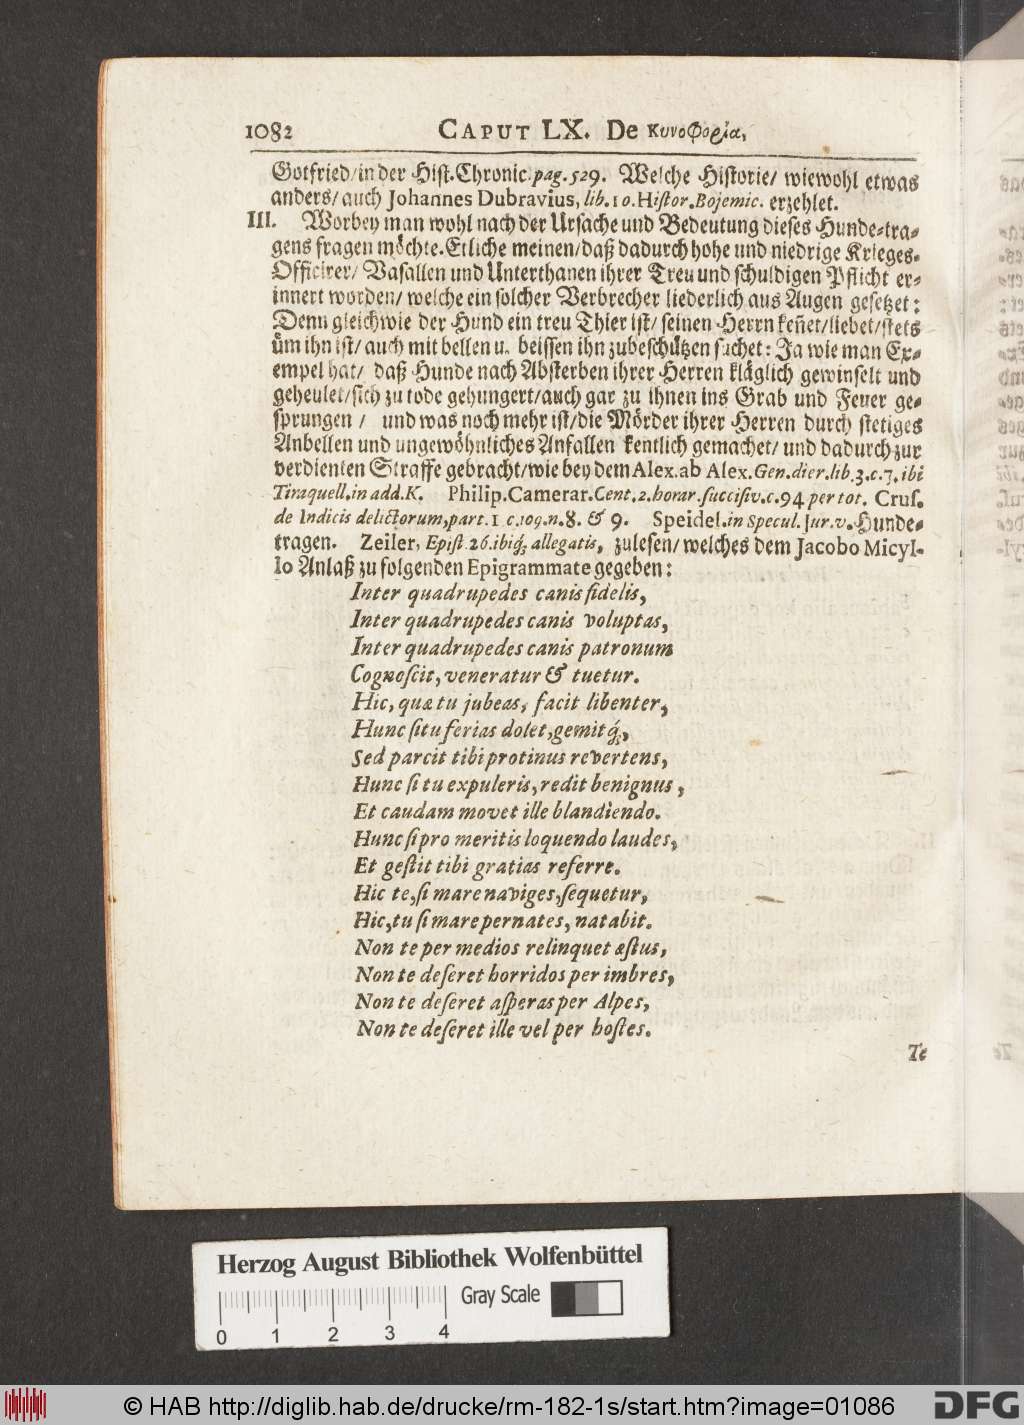 1082 CAPUT LX. De Κυνοφορία,
Gotfried/ in der Hist. Chronic. pag. 529. Welche Historie/ wiewohl etwas
anders/ auch Johannes Dubravius, lib. 10. Histor. Bojemic. erzehlet.
III. Worbey man wohl nach der Ursache und Bedeutung dieses Hunde-tra-
gens fragen möchte. Etliche meinen/ daß dadurch hohe und niedrige Krieges-
Officirer/ Vasallen und Unterthanen ihrer Treu und schuldigen Pflicht er-
innert worden/ welche ein solcher Verbrecher liederlich aus Augen gesetzet:
Denn gleichwie der Hund ein treu Thier ist/ seinen Herrn keñet/ liebet/ stets
üm ihn ist/ auch mit bellen u. beissen ihn zubeschützen suchet: Ja wie man Ex-
empel hat/ daß Hunde nach Absterben ihrer Herren kläglich gewinselt und
geheulet/ sich zu tode gehungert/ auch gar zu ihnen ins Grab und Feuer ge-
sprungen / und was noch mehr ist/ die Mörder ihrer Herren durch stetiges
Anbellen und ungewöhnliches Anfallen kentlich gemachet/ und dadurch zur
verdienten Straffe gebracht/ wie bey dem Alex. ab Alex. Gen. dier. lib. 3. c. 7. ibi
Tiraquell. in add. K. Philip. Camerar. Cent. 2. horar. succisiv. c. 94 per tot. Crus.
de Indicis delictorum, part. 1 c. 109. n. 8. & 9. Speidel. in Specul. Jur. v. Hunde-
tragen. Zeiler, Epist. 26. ibiq; allegatis, zulesen/ welches dem Jacobo Micyl-
lo Anlaß zu folgenden Epigrammate gegeben:
Inter quadrupedes canis fidelis,
Inter quadrupedes canis voluptas,
Inter quadrupedes canis patronum
Cognoscit, veneratur & tuetur.
Hic, quæ tu jubeas, facit libenter,
Hunc si tu ferias dolet, gemitq́;,
Sed parcit tibi protinus revertens,
Hunc si tu expuleris, redit benignus,
Et caudam movet ille blandiendo.
Hunc si pro meritis loquendo laudes,
Et gestit tibi gratias referre.
Hic te, si mare naviges, sequetur,
Hic, tu si mare pernates, natabit.
Non te per medios relinquet æstus,
Non te deseret horridos per imbres,
Non te deseret asperas per Alpes,
Non te deseret ille vel per hostes.
Te
Herzog August Bibliothek Wolfenbüttel
Gray Scale
0 1 2 3 4
© HAB http://diglib.hab.de/drucke/rm-182-1s/start.htm?image=01086
DFG